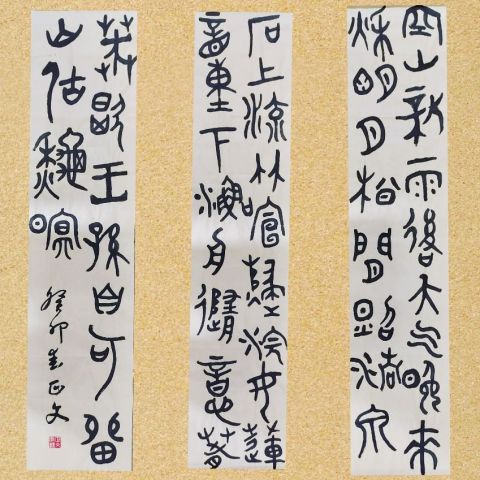 空山新雨後天气晚来
秋明月松間照清泉
石上流竹喧歸浣女蓮
動下漁舟隨意春
芳歇王孫自可留
山居秋暝
癸卯春正文